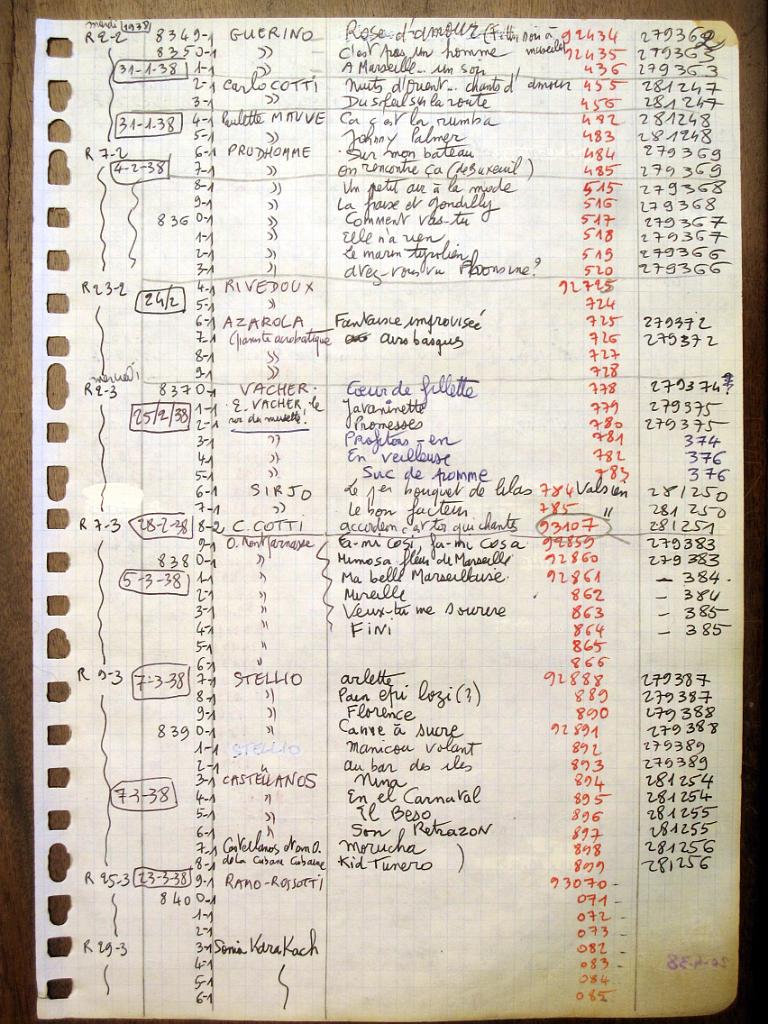 mardi 1938 2
R 2-2 8349-1 GUERINO Rose d'amour 92434 279362
8350-1 " C'est pas un homme 92435 279363
31-1-38 1-1 " A Marseille... un soir 436 279363
2-1 Carlo COTTI Nuits d'orient... chants d'amour 455 281247
3-1 " Du soleil sur la route 456 281247
31-1-38 4-1 Paulette MAUVE Ca c'est la rumba 482 281248
5-1 " Johnny Palmer 483 281248
R 7-2 6-1 PRUDHOMME Sur mon bateau 484 279369
4-2-38 7-1 " on rencontre ça (de Buxeuil) 485 279369
8-1 " Un petit air à la mode 515 279368
9-1 " La fraise et 516 279368
8360-1 " Comment vas-tu 517 279367
1-1 " Elle n'a rien 518 279367
2-1 " Le marin tyrolien 519 279366
3-1 " avez-vous vu ? 520 279366
R 23-2 4-1 RIVEDOUX 92723
24/2 5-1 " 724
6-1 AZAROLA Fantaisie improvisée 725 279372
7-1 (pianiste acrobatique airs basques 726 279372
8-1 " 727
9-1 " 728
mercredi
R 2-3 8370-1 VACHER. Cœur de fillette 778 279374?
25/2/38 1-1 E. VACHER, le Javaninette 779 279375
2-1 roi du musette! Promesses 780 279375
3-1 " Profitons-en 781 374
4-1 " En veilleuse 782 376
5-1 " Suc de pomme 783 376
6-1 SIRJO Le 1er bouquet de lilas 784 Valsien 281250
7-1 " Le bon facteur 785 " 281250
R 7-3 28-2-38 8-2 C. COTTI accordéon c'est toi qui chante 93107 281251
9-1 O. Montparnasse Fa-mi cosi fa-mi cosa 92859 279383
8380-1 " Mimosa fleur de Marseille 92860 279383
5-3-38 1-1 " Ma belle Marseillaise 92861 – 384.
2-1 " Mireille 862 – 384
3-1 " Veux-tu me sourire 863 – 385
4-1 " FINI 864 – 385
5-1 " 865
6-1 " 866
R 9-3 7-3-38 7-1 STELLIO arlette 92888 279387
8-1 " Pain épi lozi (?) 889 279387
9-1 " Florence 890 279388
8390-1 " Canne à sucre 92891 279388
1-1 STELLIO Manicou volant 892 279389
2-1 " au bar des iles 893 279389
7-3-38 3-1 CASTELLANOS Nina 894 281254
4-1 " En el Carnaval 895 281254
5-1 " El Beso 896 281255
6-1 " Son Retrazon 897 281255
7-1 Castellanos et son O. Morucha 898 281256
8-1 de la Cabane Cubaine Kid Tunero ) 899 281256
R 25-3 23-3-38 9-1 RAMO-ROSSOTTI 93070 -
8400-1 071 -
1-1 072 -
2-1 073 -
R 29-3 3-1 Sonia KaraKach 082
4-1 083
5-1 084
6-1 085